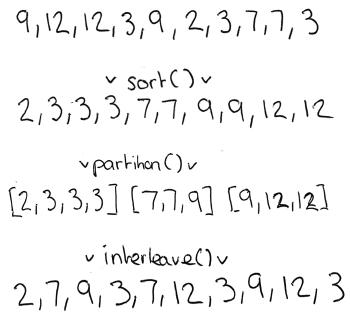 9,12,12,3,9,2,3,7,7,3
v sort() v
2,3,3,3,7,7,9,9,12,12
v partition() v
[2,3,3,3] [7,7,9] [9,12,12]
v interleave() v
2,7,9,3,7,12,3,9,12,3